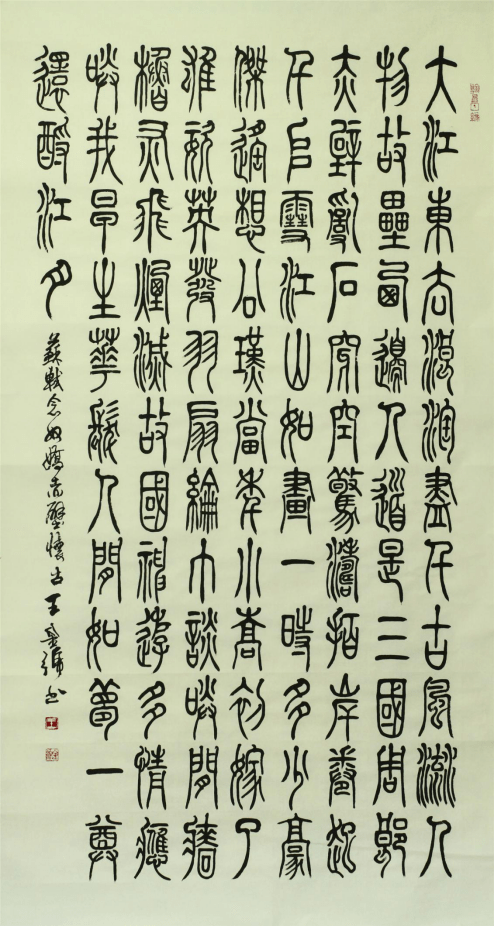 大江東去浪淘盡千古風流人
物故壘西邊人道是三國周郎
赤壁亂石穿空驚濤拍岸卷起
千𠂤雪江山如畫一時多少豪
傑遙想公瑾當年小喬初嫁了
雄姿英發羽扇綸巾談笑間檣
櫓灰飛煙滅故國神遊多情應
笑我早生華髮人間如夢一尊
還酹江月
蘇軾念奴嬌赤壁懷古 王 书